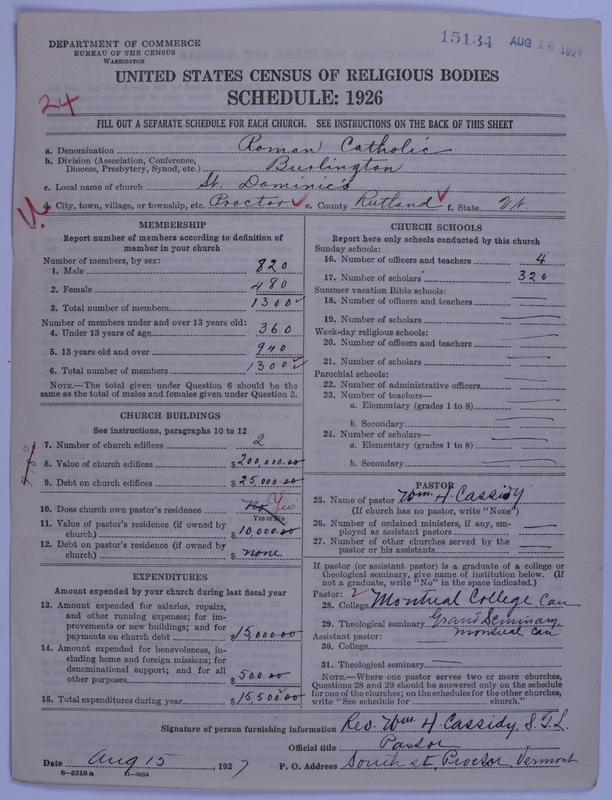 DEPARTMENT OF COMMERCE
BUREAU OF THE CENSUS
WASHINGTON
15134 AUG 16 1927
UNITED STATES CENSUS OF RELIGIOUS BODIES
SCHEDULE: 1926
24
FILL OUT A SEPARATE SCHEDULE FOR EACH CHURCH. SEE INSTRUCTIONS ON THE BACK OF THIS SHEET
a. Denomination Roman Catholic
b. Division (Association, Conference, Diocese, Presbytery, Synod, etc.) Burlington
c. Local name of church St. Dominic's
d. City, town, village, or township, etc. Proctor e. County Rutland f. State Vt.
MEMBERSHIP
Report number of members according to definition of member in your church
Number of members, by sex:
1. Male 820
2. Female 480
3. Total number of members 1300
Number of members under and over 13 years old:
4. Under 13 years of age 360
5. 13 years old and over 940
6. Total number of members 1300
NOTE.—The total given under Question 6 should be the same as the total of males and females given under Question 3.
CHURCH BUILDINGS
See instructions, paragraphs 10 to 12
7. Number of church edifices 2
8. Value of church edifices $200,000.00
9. Debt on church edifices $25,000.00
10. Does church own pastor's residence No Yes
Yes or No
11. Value of pastor's residence (if owned by church) $10,000.00
12. Debt on pastor's residence (if owned by church) $none
EXPENDITURES
Amount expended by your church during last fiscal year
13. Amount expended for salaries, repairs, and other running expenses; for improvements or new buildings; and for payments on church debt $15,000.00
14. Amount expended for benevolences, including home and foreign missions; for denominational support; and for all other purposes $500.00
15. Total expenditures during year $15,500.00
CHURCH SCHOOLS
Report here only schools conducted by this church
Sunday schools:
16. Number of officers and teachers 4
17. Number of scholars 320
Summer vacation Bible schools:
18. Number of officers and teachers
19. Number of scholars
Week-day religious schools:
20. Number of officers and teachers
21. Number of scholars
Parochial schools:
22. Number of administrative officers
23. Number of teachers—
a. Elementary (grades 1 to 8)
b. Secondary
24. Number of scholars—
a. Elementary (grades 1 to 8)
b. Secondary
PASTOR
25. Name of pastor Wm. H. Cassidy
(If church has no pastor, write "None")
26. Number of ordained ministers, if any, employed as assistant pastors
27. Number of other churches served by the pastor or his assistants
If pastor (or assistant pastor) is a graduate of a college or theological seminary, give name of institution below. (If not a graduate, write "No" in the space indicated.)
Pastor:
28. College Montreal College Can
29. Theological seminary Grand Seminary, Montreal Can
Assistant pastor:
30. College
31. Theological seminary
NOTE.—Where one pastor serves two or more churches, Questions 28 and 29 should be answered only on the schedule for one of the churches; on the schedules for the other churches, write "See schedule for church."
Signature of person furnishing information Rev. Wm. H. Cassidy, S.T.L.
Official title Pastor
Date Aug 15, 1927 P. O. Address South st, Proctor Vermont
8—5318 a 11—9054